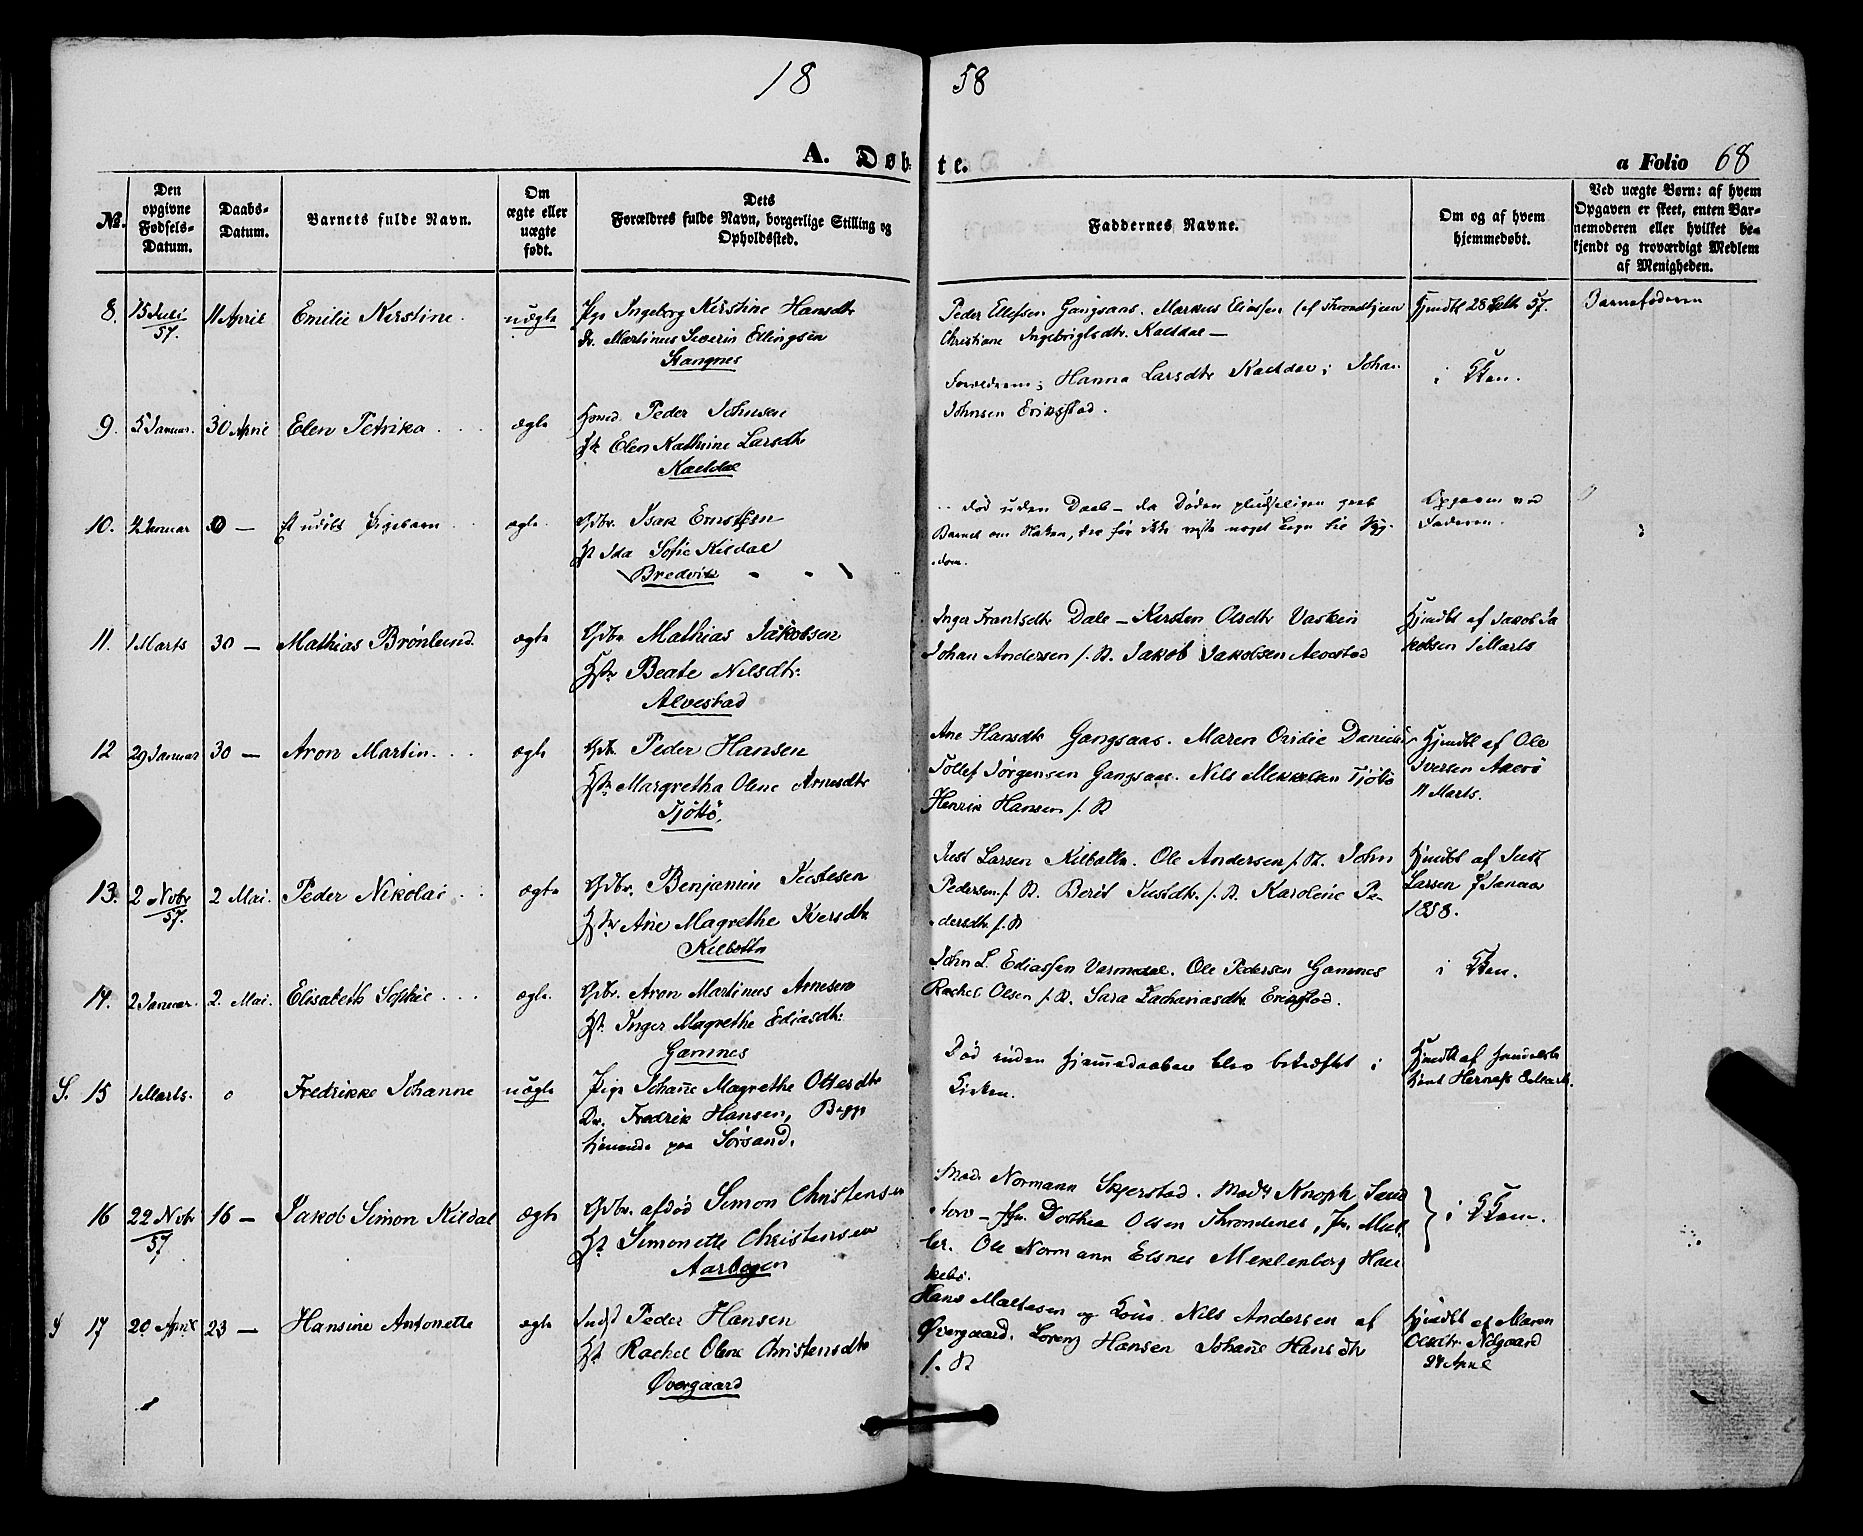 18 58
A. Døbte.
a Folio 68
No.
Den opgivne Fødsels-Datum.
Daabs-Datum.
Barnets fulde Navn.
Om ægte eller uægte født.
Dets Forældres fulde Navn, borgerlige Stilling og Opholdssted.
Faddernes Navne.
Om og af hvem hjemmedøbt.
Ved uægte Børn: af hvem Opgaven er skeet, enten Barnemoderen eller hvilket bekjendt og troværdigt Medlem af Menigheden.
8. 15 Juli 57. 11 April Emilie Kirstine. uægte
Pige Ingeborg Kirstine Hansdtr
Martinus Severin Ellingsen
Stangnes
Peder Ellefsen Gangsaas. Markus Eliassen
Christiane Ingebrigtsdtr. Kaldal —
Hjmdbt 28 57.
Barnefaderen
9. 5 Januar. 30 April Elen Petrika ægte
Peder Johnsen
Elen Kathrine Larsdtr
Kaldal
Forældrene; Hanna Larsdtr Kaldal; Johan
Johnsen Erikstad.
i Kken.
10. 2 Januar 30 — Et udøbt Pigebarn ægte.
Gdbr. Isak Ernstsen
Ida Sofie Kildal
Bredvik
død uden Daab — da Døden pludseligen greb
Barnet om Natten, der før ikke viste noget Tegn til Syg-
dom.
Opgaven ved
Faderen.
11. 1 Marts 30 — Mathias Brønlund. ægte
Gdbr Mathias Jakobsen
Hstr Beate Nilsdtr.
Alvestad
Inger Frantsdtr Dale — Kirsten Olsdtr Vaskin
Johan Andersen s. St. Jakob Jakobsen Alvestad
Hjmdbt af Jakob Ja
kobsen 1 Marts
12 29 Januar 30 — Aron Martin. ægte
Gdbr. Peder Hansen
Hstr Margretha Oline Arnesdtr
Tjøttø.
Ane Hansdtr Gangsaas. Maren Ovidie
Tollef Jørgensen Gangsaas. Nils Mikkelsen Tjøtø
Henrik Hansen s. St
Hjmdbt af Ole
Iversen
11 Marts.
13. 2 Novbr 57. 2 Mai. Peder Nikolai ægte
Gdbr. Benjamin Justesen
Hstr Ane Magrethe Iversdtr
Kilbotn
Just Larsen Kilbotn. Ole Andersen s. St. John
Pedersen s. St. Berit Justdtr. s. St. Karoline Pe-
dersdtr s. St
Hjmdbt af Just
Larsen 7 Januar
1858.
14. 2 Januar. 2. Mai. Elisabeth Sophie ægte.
Gdbr. Aron Martinus Arnesen
Hst. Inger Magrethe Ediasdtr.
Gamnes
John L. Ediassen Varmdal. Ole Pedersen Gamnes
Rachel Olsen s. St. Sara Zachariasdtr Erikstad.
i Kken.
S. 15 1 Marts. 0 Fredrikke Johanne uægte
Pige Johane Magrethe Ottesdtr
Dr. Fredrik Hansen, Begge
tjenende paa Sørsand.
Død inden Hjemmedaaben blev bekræftet i
Kirken.
Hjmdbt af
16 22 Novbr 57 16 — Jakob Simon Kildal ægte
Gdbr. afdød Simon Christensen
Hst Simonette Christensen
Aarbogen
Mad. Normann Skjerstad. Mad. Knoph Sand
torv — Jfr. Dorthea Olsen Throndenes, Jfr. Mul-
ler. Ole Normann Elsnes Meklenberg
i Kken.
S 17 20 April 23 — Hansine Antonette ægte
Indst Peder Hansen
Hst Rachel Oline Christensdtr
Øvergaard
Hans Mathesen og Nils Andersen af
Øvergaard. Lorenz Hansen Johane Hansdtr
s. St
Hjmdbt af Maren
Olsdtr. Nilgaard
24 April